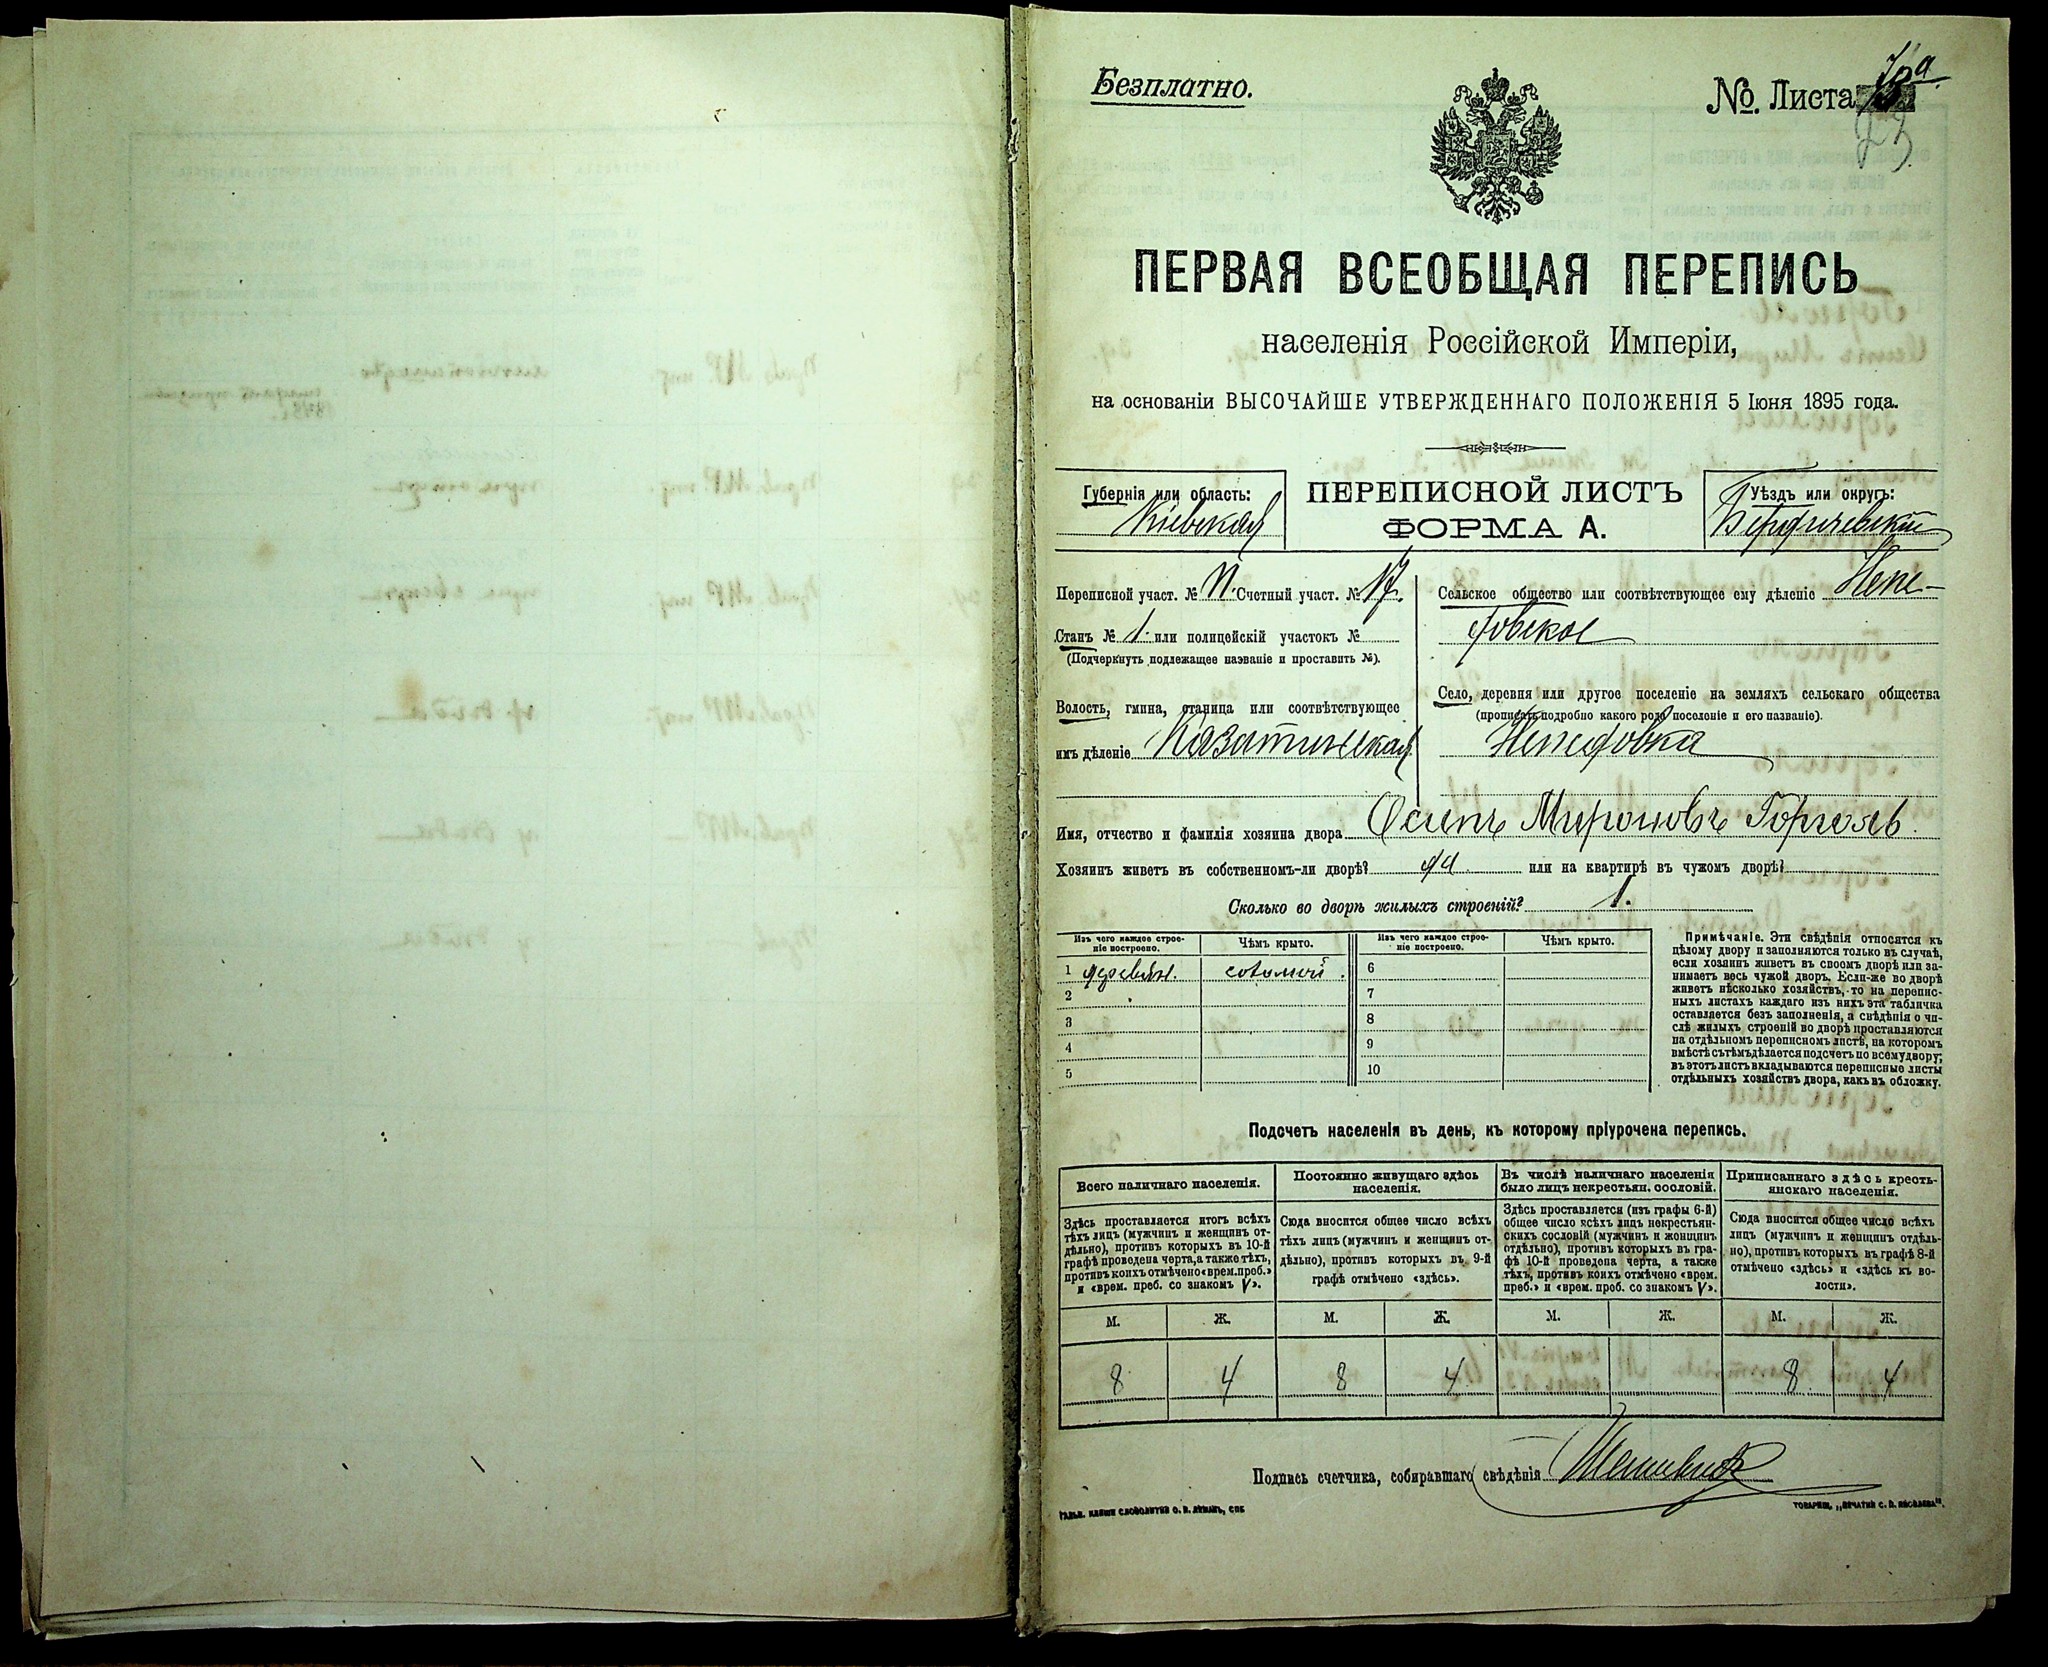 Безплатно.
№. Листа
ПЕРВАЯ ВСЕОБЩАЯ ПЕРЕПИСЬ
населенія Россійской Имперіи,
на основаніи ВЫСОЧАЙШЕ УТВЕРЖДЕННАГО ПОЛОЖЕНІЯ 5 Іюня 1895 года.
Губернія или область:
Кіевская
ПЕРЕПИСНОЙ ЛИСТЪ
ФОРМА А.
Уѣздъ или округъ:
Бердичевскій
Переписной участ. № Счетный участ. № 17.
Станъ № 1. или полицейскій участокъ №
(Подчеркнуть подлежащее названіе и проставить №).
Волость, гмина, станица или соотвѣтствующее
имъ дѣленіе Казатинская
Сельское общество или соотвѣтствующее ему дѣленіе Непе-
довское
Село, деревня или другое поселеніе на земляхъ сельскаго общества
(прописать подробно какого рода поселеніе и его названіе).
Непедовка
Имя, отчество и фамилія хозяина двора Осипъ Мироновъ Горголь.
Хозяинъ живетъ въ собственномъ-ли дворѣ? да или на квартирѣ въ чужомъ дворѣ?
Сколько во дворѣ жилыхъ строеній? 1.
Изъ чего каждое строе-
ніе построено.
Чѣмъ крыто.
Изъ чего каждое строе-
ніе построено.
Чѣмъ крыто.
1 деревян. соломой. 6
2 7
3 8
4 9
5 10
Примѣчаніе. Эти свѣдѣнія относятся къ
цѣлому двору и заполняются только въ случаѣ,
если хозяинъ живетъ въ своемъ дворѣ или за-
нимаетъ весь чужой дворъ. Если-же во дворѣ
живетъ нѣсколько хозяйствъ, то на перепис-
ныхъ листахъ каждаго изъ нихъ эта табличка
оставляется безъ заполненія, а свѣдѣнія о чи-
слѣ жилыхъ строеній во дворѣ проставляются
на отдѣльномъ переписномъ листѣ, на которомъ
вмѣстѣ съ тѣмъ дѣлается подсчетъ по всему двору;
въ этотъ листъ вкладываются переписные листы
отдѣльныхъ хозяйствъ двора, какъ въ обложку.
Подсчетъ населенія въ день, къ которому пріурочена перепись.
Всего наличнаго населенія.
Здѣсь проставляется итогъ всѣхъ
тѣхъ лицъ (мужчинъ и женщинъ от-
дѣльно), противъ которыхъ въ 10-й
графѣ проведена черта, а также тѣхъ,
противъ коихъ отмѣчено «врем. преб.»
и «врем. преб. со знакомъ V».
Постоянно живущаго здѣсь
населенія.
Сюда вносится общее число всѣхъ
тѣхъ лицъ (мужчинъ и женщинъ от-
дѣльно), противъ которыхъ въ 9-й
графѣ отмѣчено «здѣсь».
Въ числѣ наличнаго населенія
было лицъ некрестьян. сословій.
Здѣсь проставляется (изъ графы 6-й)
общее число всѣхъ лицъ некрестьян-
скихъ сословій (мужчинъ и женщинъ
отдѣльно), противъ которыхъ въ гра-
фѣ 10-й проведена черта, а также
тѣхъ, противъ коихъ отмѣчено «врем.
преб.» и «врем. преб. со знакомъ V».
Приписаннаго здѣсь кресть-
янскаго населенія.
Сюда вносится общее число всѣхъ
лицъ (мужчинъ и женщинъ отдѣль-
но), противъ которыхъ въ графѣ 8-й
отмѣчено «здѣсь» и «здѣсь къ во-
лости».
М. Ж. М. Ж. М. Ж. М. Ж.
8 4 8 4 8 4
Подпись счетчика, собиравшаго свѣдѣнія